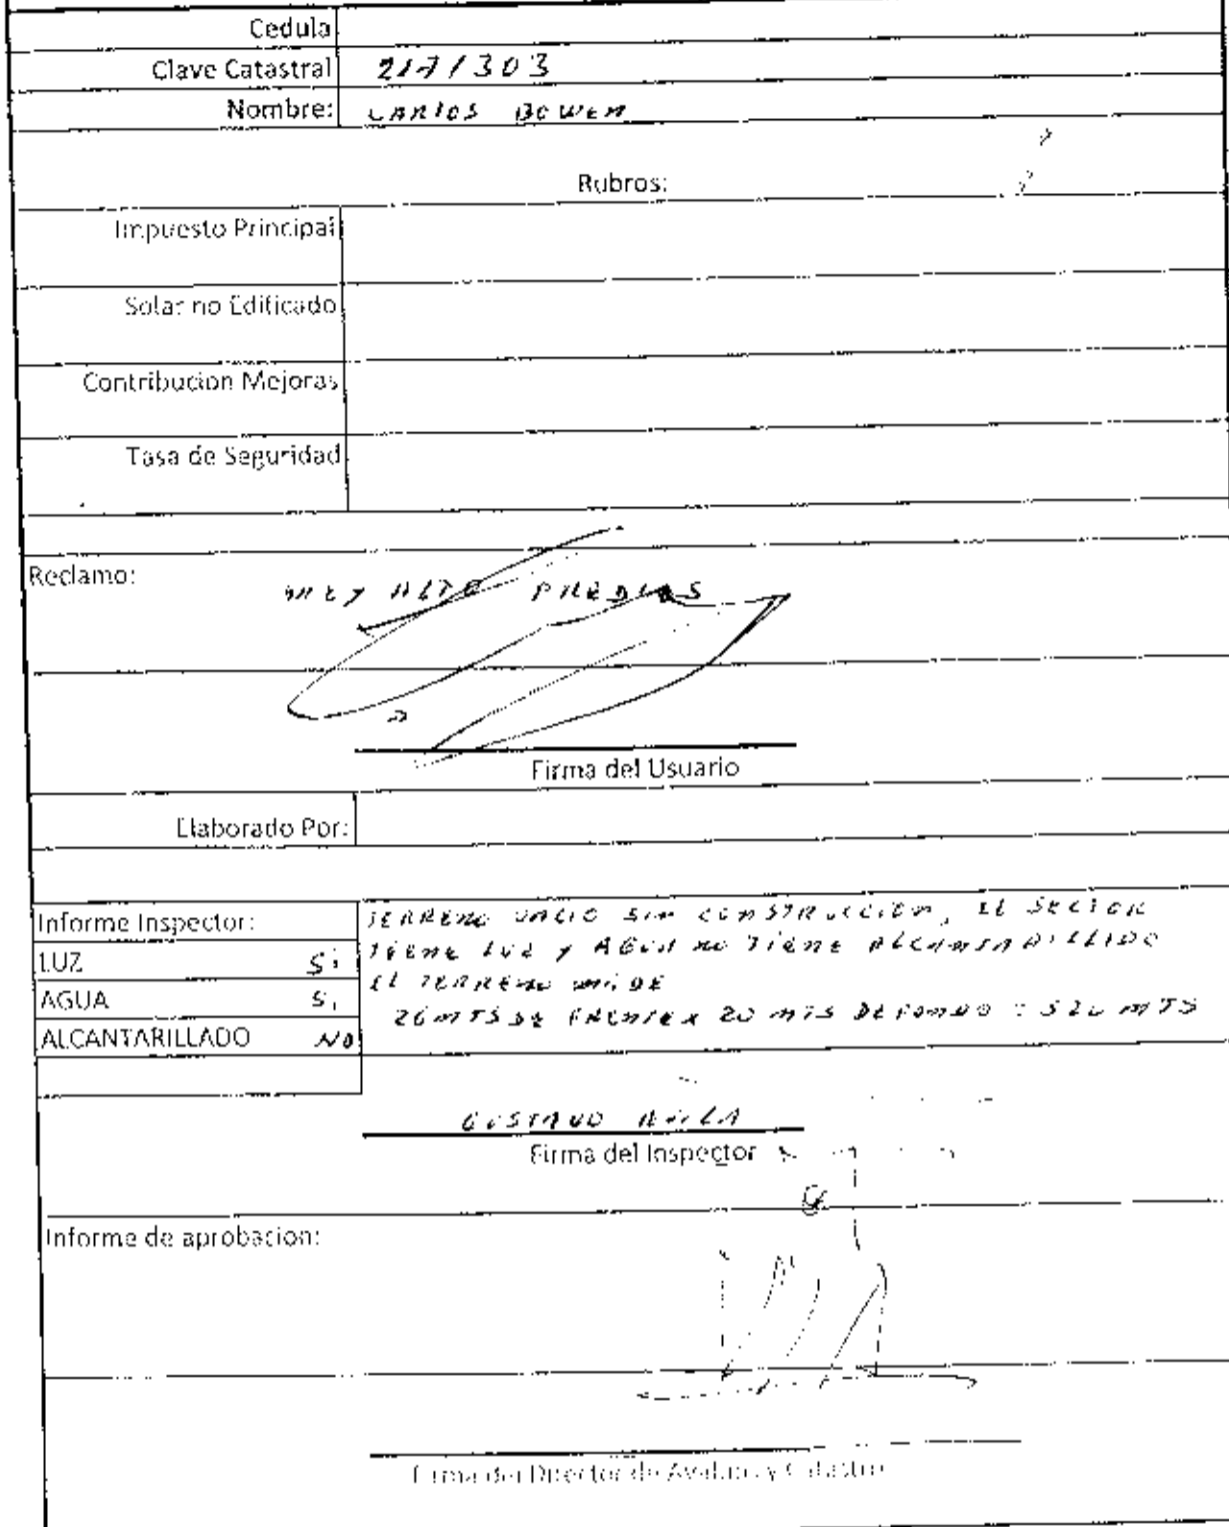 Cedula
Clave Catastral 2171303
Nombre: CARLOS BOWEN
Rubros:
Impuesto Principal
Solar no Edificado
Contribucion Mejoras
Tasa de Seguridad
Reclamo:
MUY ALTO PREDIOS
Firma del Usuario
Elaborado Por:
Informe Inspector: TERRENO VACIO SIN CONSTRUCCION, EL SECTOR
LUZ Si TIENE LUZ Y AGUA NO TIENE ALCANTARILLADO
AGUA Si EL TERRENO MIDE
26 MTS DE FRENTE X 20 MTS DE FONDO = 520 MTS
ALCANTARILLADO NO
GUSTAVO AVILA
Firma del Inspector
Informe de aprobacion:
Firma del Director de Avaluos y Catastro